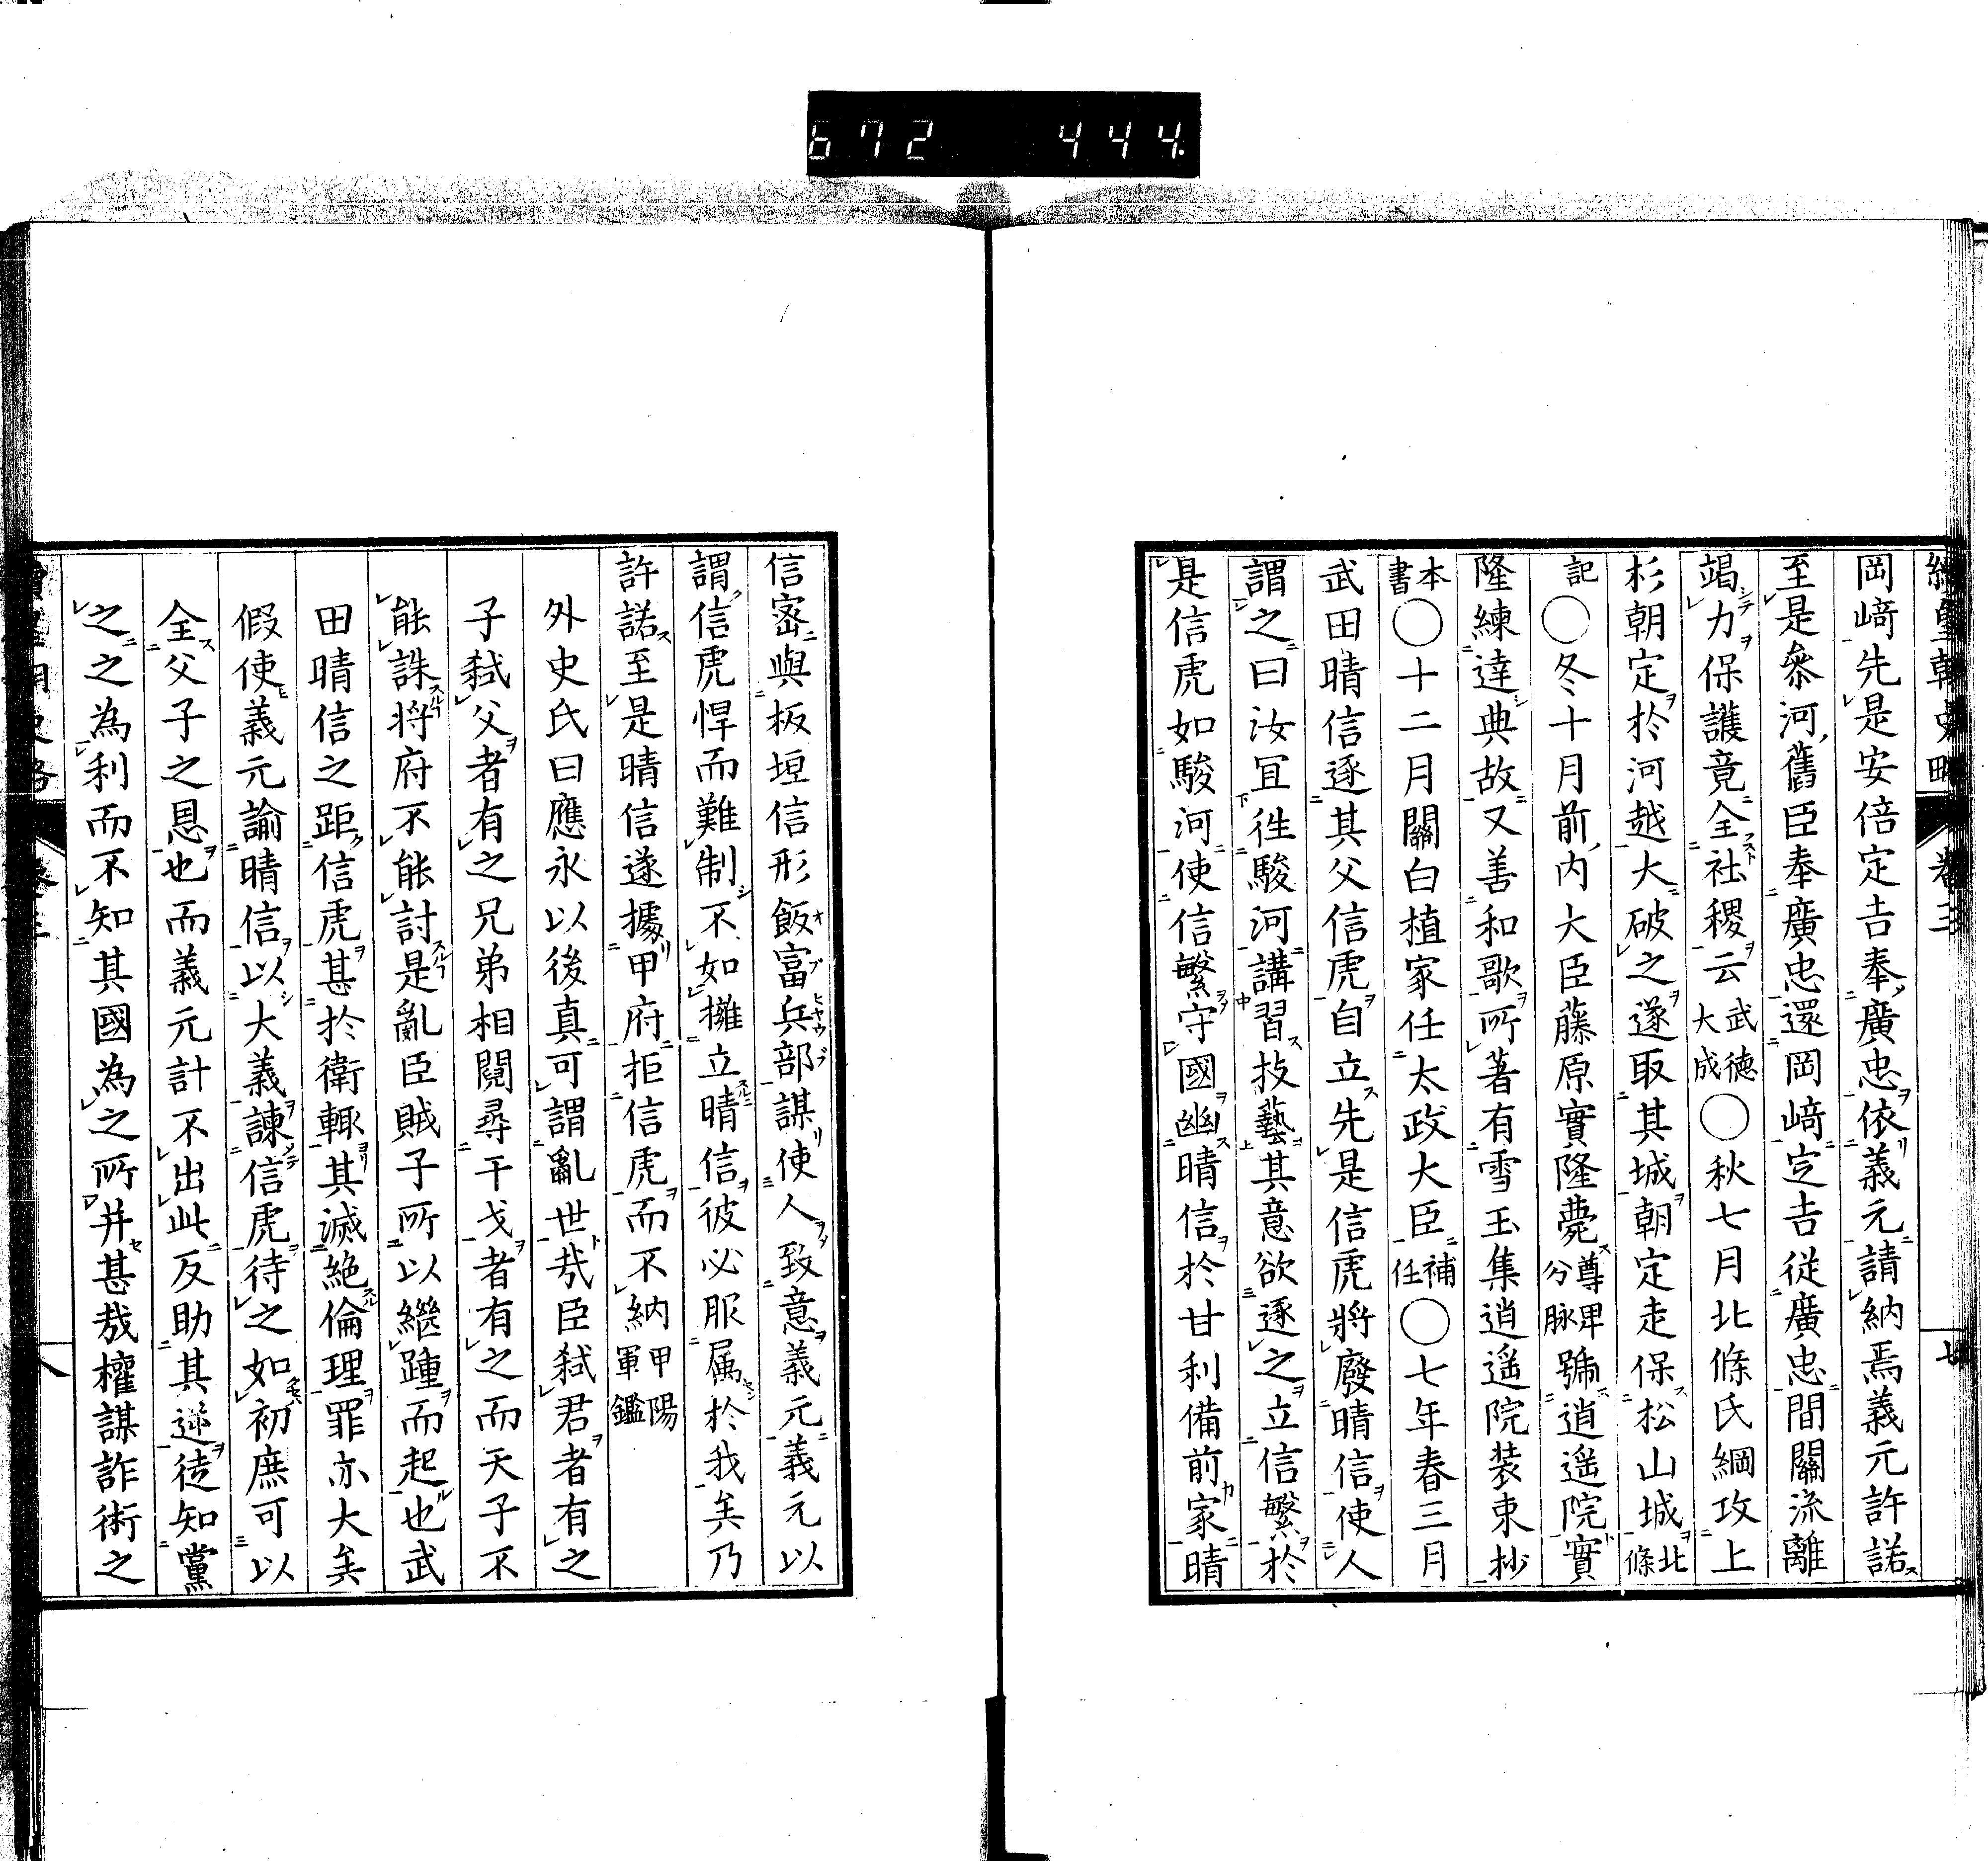 672 444.
續皇朝史略 卷三 七
岡﨑先是安倍定吉奉廣忠依義元請納焉義元許諾
至是叅河舊臣奉廣忠還岡﨑定吉從廣忠間關流離
竭力保護竟全社稷云武德大成○秋七月北條氏綱攻上
杉朝定於河越大破之遂取其城朝定走保松山城北條
記○冬十月前內大臣藤原實隆薨尊卑分脉號逍遥院實
隆練達典故又善和歌所著有雪玉集逍遥院装束抄
本書○十二月關白植家任太政大臣補任○七年春三月
武田晴信逐其父信虎自立先是信虎將廢晴信使人
謂之曰汝宜徃駿河講習技藝其意欲逐之立信繁於
是信虎如駿河使信繁守國幽晴信於甘利備前家晴
信宻與板垣信形飯富兵部謀使人致意義元義元以
謂信虎悍而難制不如擁立晴信彼必服属於我矣乃
許諾至是晴信遂據甲府拒信虎而不納甲陽軍鑑
外史氏曰應永以後真可謂亂世哉臣弑君者有之
子弑父者有之兄弟相鬩尋干戈者有之而天子不
能誅將府不能討是亂臣賊子所以繼踵而起也武
田晴信之距信虎甚於衛輒其滅絶倫理罪亦大矣
假使義元諭晴信以大義諫信虎待之如初庶可以
全父子之恩也而義元計不出此反助其逆徒知黨
之之為利而不知其國為之所并甚哉權謀詐術之
八